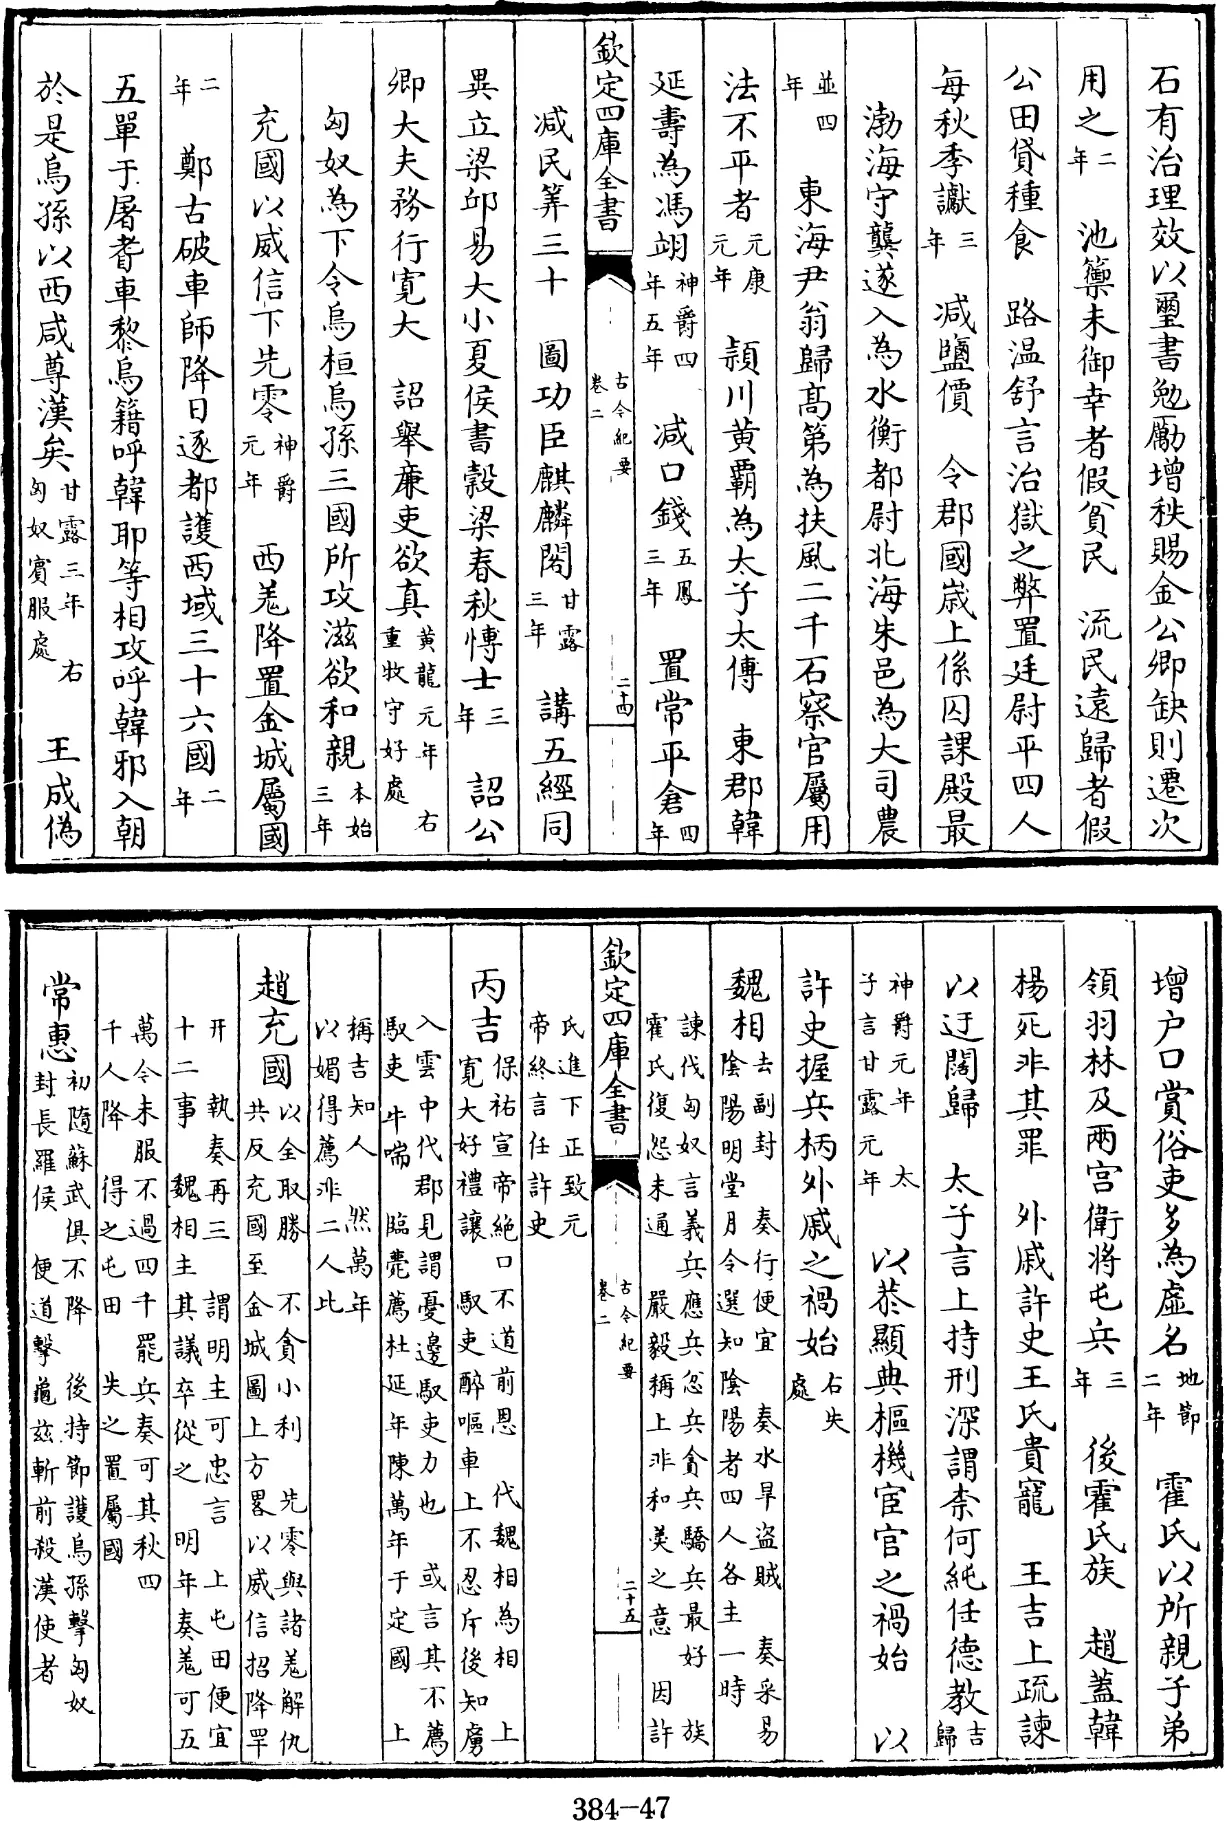 石有治理效以璽書勉勵增秩賜金公卿缺則遷次
用之二年 池籞未御幸者假貧民 流民遠歸者假
公田貸種食 路温舒言治獄之弊置廷尉平四人
每秋季讞三年 減鹽價 令郡國歳上係囚課殿最
渤海守龔遂入為水衡都尉北海朱邑為大司農
並四年 東海尹翁歸髙第為扶風二千石察官屬用
法不平者元康元年 頴川黄霸為太子太傅 東郡韓
延壽為馮翊神爵四年五年 減口錢五鳳三年 置常平倉四年
欽定四庫全書
古今紀要
卷二
二十四
減民筭三十 圖功臣麒麟閣甘露三年 講五經同
異立梁邱易大小夏侯書穀梁春秋博士三年 詔公
卿大夫務行寛大 詔舉廉吏欲真黄龍元年 右重牧守好處
匈奴為下令烏桓烏孫三國所攻滋欲和親本始三年
充國以威信下先零神爵元年 西羗降置金城屬國
二年 鄭古破車師降日逐都護西域三十六國二年
五單于屠耆車黎烏籍呼韓耶等相攻呼韓邪入朝
於是烏孫以西咸尊漢矣甘露三年 右匈奴賓服處 王成偽
增户口賞俗吏多為虛名地節二年 霍氏以所親子弟
領羽林及两宫衛將屯兵三年 後霍氏族 趙蓋韓
楊死非其罪 外戚許史王氏貴寵 王吉上疏諫
以迂闊歸 太子言上持刑深謂柰何純任德教吉歸
神爵元年 太子言甘露元年 以㳟顯典樞機宦官之禍始 以
許史握兵柄外戚之禍始右失處
魏相去副封 奏行便宜 奏水旱盗賊 奏采易
陰陽明堂月令選知陰陽者四人各主一時
諫伐匈奴言義兵應兵忿兵貪兵驕兵最好 族
霍氏復怨未通 嚴毅稱上非和羙之意 因許
欽定四庫全書
古今紀要
卷二
二十五
氏進下正致元
帝終言任許史
丙吉保祐宣帝絶口不道前恩 代魏相為相 上
寛大好禮讓 馭吏醉嘔車上不忍斥後知虜
入雲中代郡見謂憂邊馭吏力也 或言其不薦
馭吏 牛喘 臨薨薦杜延年陳萬年于定國 上
稱吉知人 然萬年
以媚得薦非二人此
趙充國以全取勝 不貪小利 先零與諸羗解仇
共反充國至金城圖上方畧以威信招降罕
幵 執奏再三 謂明主可忠言 上屯田便宜
十二事 魏相主其議卒從之 明年奏羗可五
萬令未服不過四千罷兵奏可其秋四
千人降 得之屯田 失之置屬國
常惠初隨蘇武俱不降 後持節護烏孫擊匈奴
封長羅侯 便道擊龜兹斬前殺漢使者
384-47